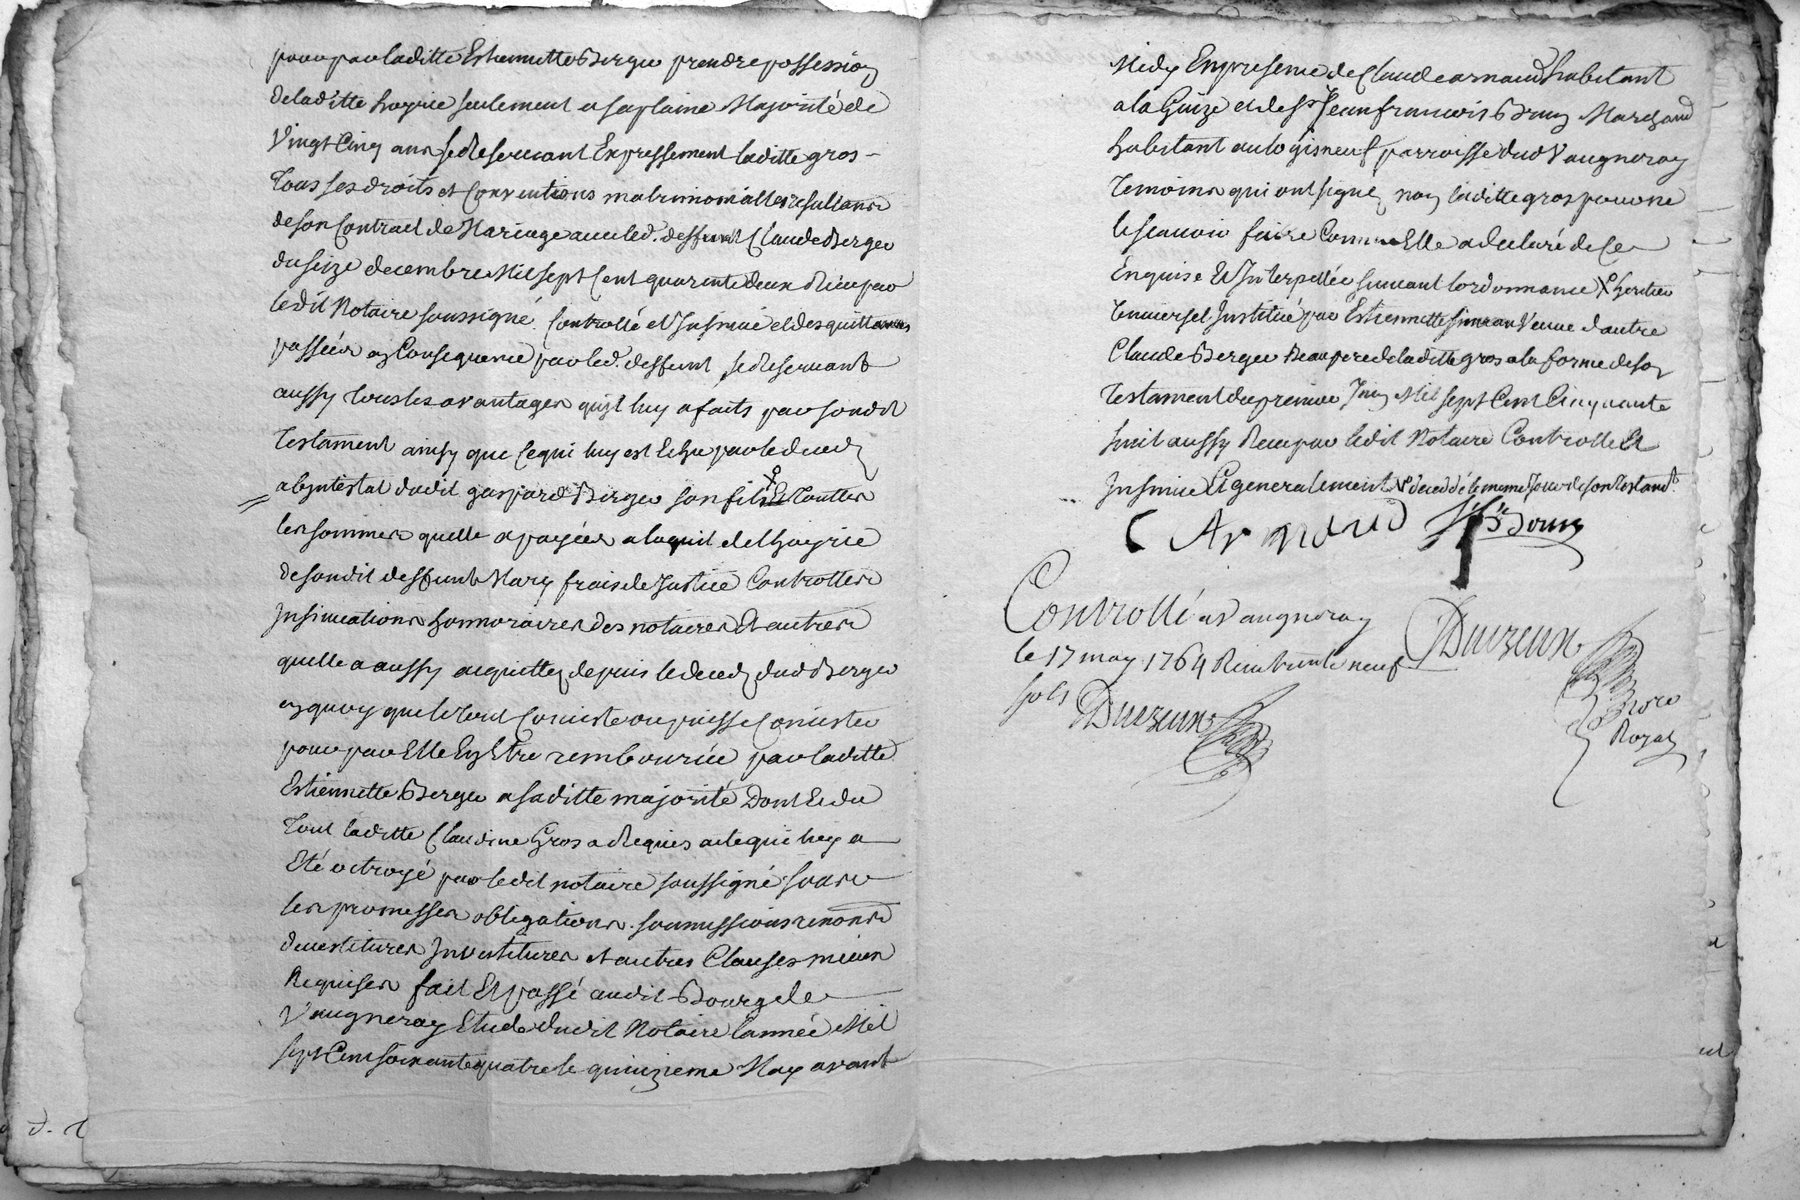 pour par laditte Estiennette Berger prendre possession
de laditte hoyrie seulement a sa plaine Majorité de
Vingt Cinq ans se Reservant Expressement laditte gros -
Tous ses droits et Conventions matrimonialles resultans
de son Contract de Mariage avec led. deffunt Claude Berger
du seize decembre Mil sept Cent quarente deux Receu par
ledit Notaire soussigné Controllé et Insinué et des quittances
passées en Consequence par led. deffunt, se Reservant
aussy tous les avantages qu'jl luy a faits par sondit
Testament ainsy que ce qui luy est Echu par le deced
abjntestat dudit gaspard Berger son fils Et Touttes
les sommes quelle a payées a laquit de l'hoyrie
de sondit deffunt Mary frais de Justice Controlles
Insinuations honnoraires des notaires Et autres
quelle a aussy acquittez depuis le deced dud Berger
en quoy que le tout Consiste ou puisse Consister
pour par Elle En Etre remboursée par laditte
Estiennette Berger a saditte majorité Dont Et du
Tout laditte Claudine Gros a Requis acte qui luy a
Eté octroyé par ledit notaire soussigné sous
les promesses obligations soumissions renons
devestitures Investitures et autres Clauses
Requises fait Et passé audit Bourg de
Vaugneray Etude dudit Notaire lannée Mil
sept Cent soixante quatre le quinzieme May avant
Midy En presence de Claude arnaud habitant
a la Guize et de sr. Jean francois Brun Marchand
habitant au logis neuf parroisse dud Vaugneray
Temoins qui ont signé, non laditte gros pour ne
le scavoir faire Comme Elle a declaré de Ce
Enquise Et Interpellée suivant lordonnance heritier
universel Institué par Estiennette Veuve dautre
Claude Berger Beaupere de laditte gros a la forme de son
Testament du premier Juin Mil sept Cent Cinquante
huit aussy Receu par ledit Notaire Controllé Et
Insinué Et generalement decedé le meme Jour de son Testamt.
C Arnaud Brun
Controllé a Vaugneray
le 17 may 1764 Receu trente neuf
sols